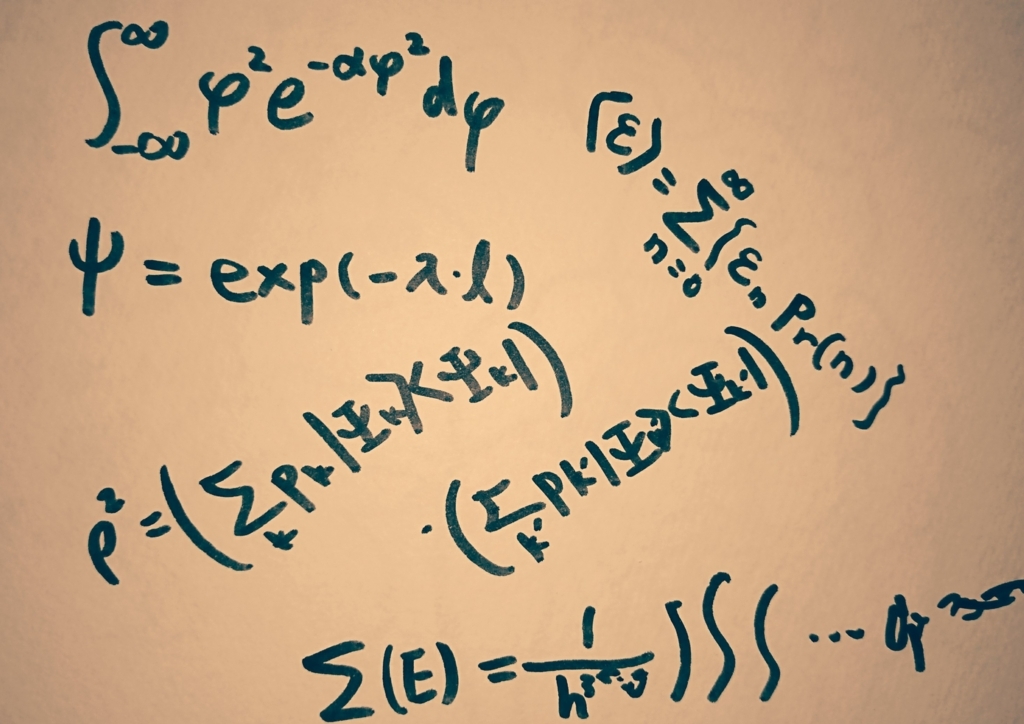 ∫_{-∞}^{∞} φ² e^{-αφ²} dφ
⟨ε⟩ = Σ_{n=0}^{∞} {ε_n Pr(n)}
ψ = exp(-λ·l)
ρ² = (Σ_k p_k |Ψ_k⟩⟨Ψ_k|)
· (Σ_{k'} p_{k'} |Ψ_{k'}⟩⟨Ψ_{k'}|)
Σ(E) = 1/h ∫∫∫ ...